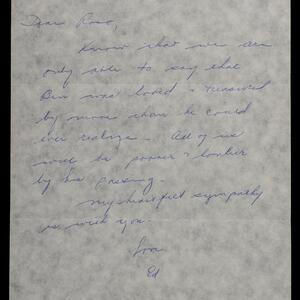 Dear Rose,
Know that we are
only able to say that
Ben was loved & treasured
by more than he could
ever realize. All of us
will be poorer & lonlier
by his passing.
My heartfelt sympathy
is with you.
Love
Ed